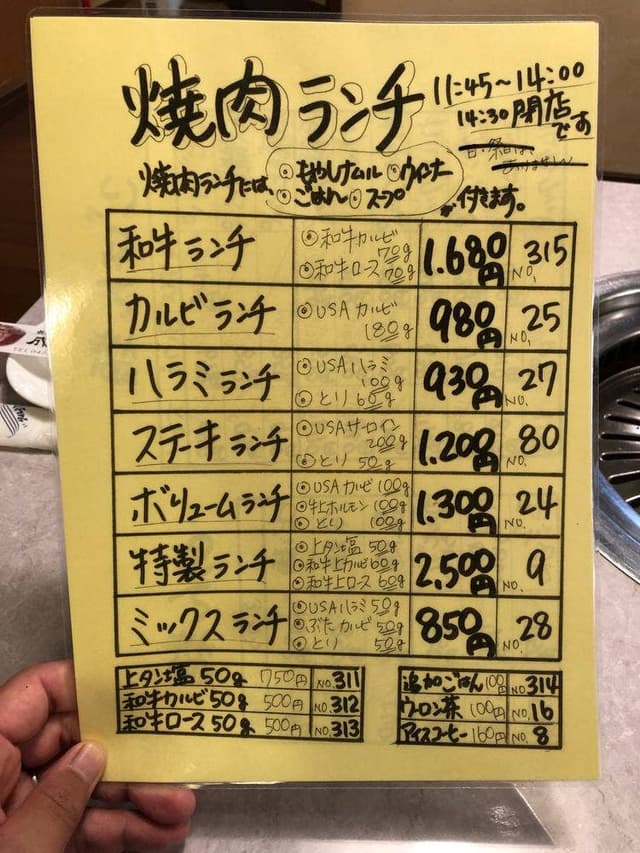 焼肉ランチ
11:45~14:00
14:30閉店
です
焼肉ランチには、
◎もやしナムル ◎ウィンナー
◎ごはん ◎スープ
が付きます。
和牛ランチ ◎和牛カルビ 70g ◎和牛ロース 70g 1.680円 NO. 315
カルビランチ ◎USAカルビ 180g 980円 NO. 25
ハラミランチ ◎USAハラミ 100g ◎とり 60g 930円 NO. 27
ステーキランチ ◎USAサーロイン 200g ◎とり 50g 1.200円 NO. 80
ボリュームランチ ◎USAカルビ 100g ◎牛上ホルモン 100g ◎とり 100g 1.300円 NO. 24
特製ランチ ◎上タン塩 50g ◎和牛上カルビ 60g ◎和牛上ロース 60g 2.500円 NO. 9
ミックスランチ ◎USAハラミ 50g ◎ぶたカルビ 50g ◎とり 50g 850円 NO. 28
上タン塩 50g 750円 NO. 311
和牛カルビ 50g 500円 NO. 312
和牛ロース 50g 500円 NO. 313
追加ごはん 100円 NO. 314
ウーロン茶 100円 NO. 16
アイスコーヒー 160円 NO. 8